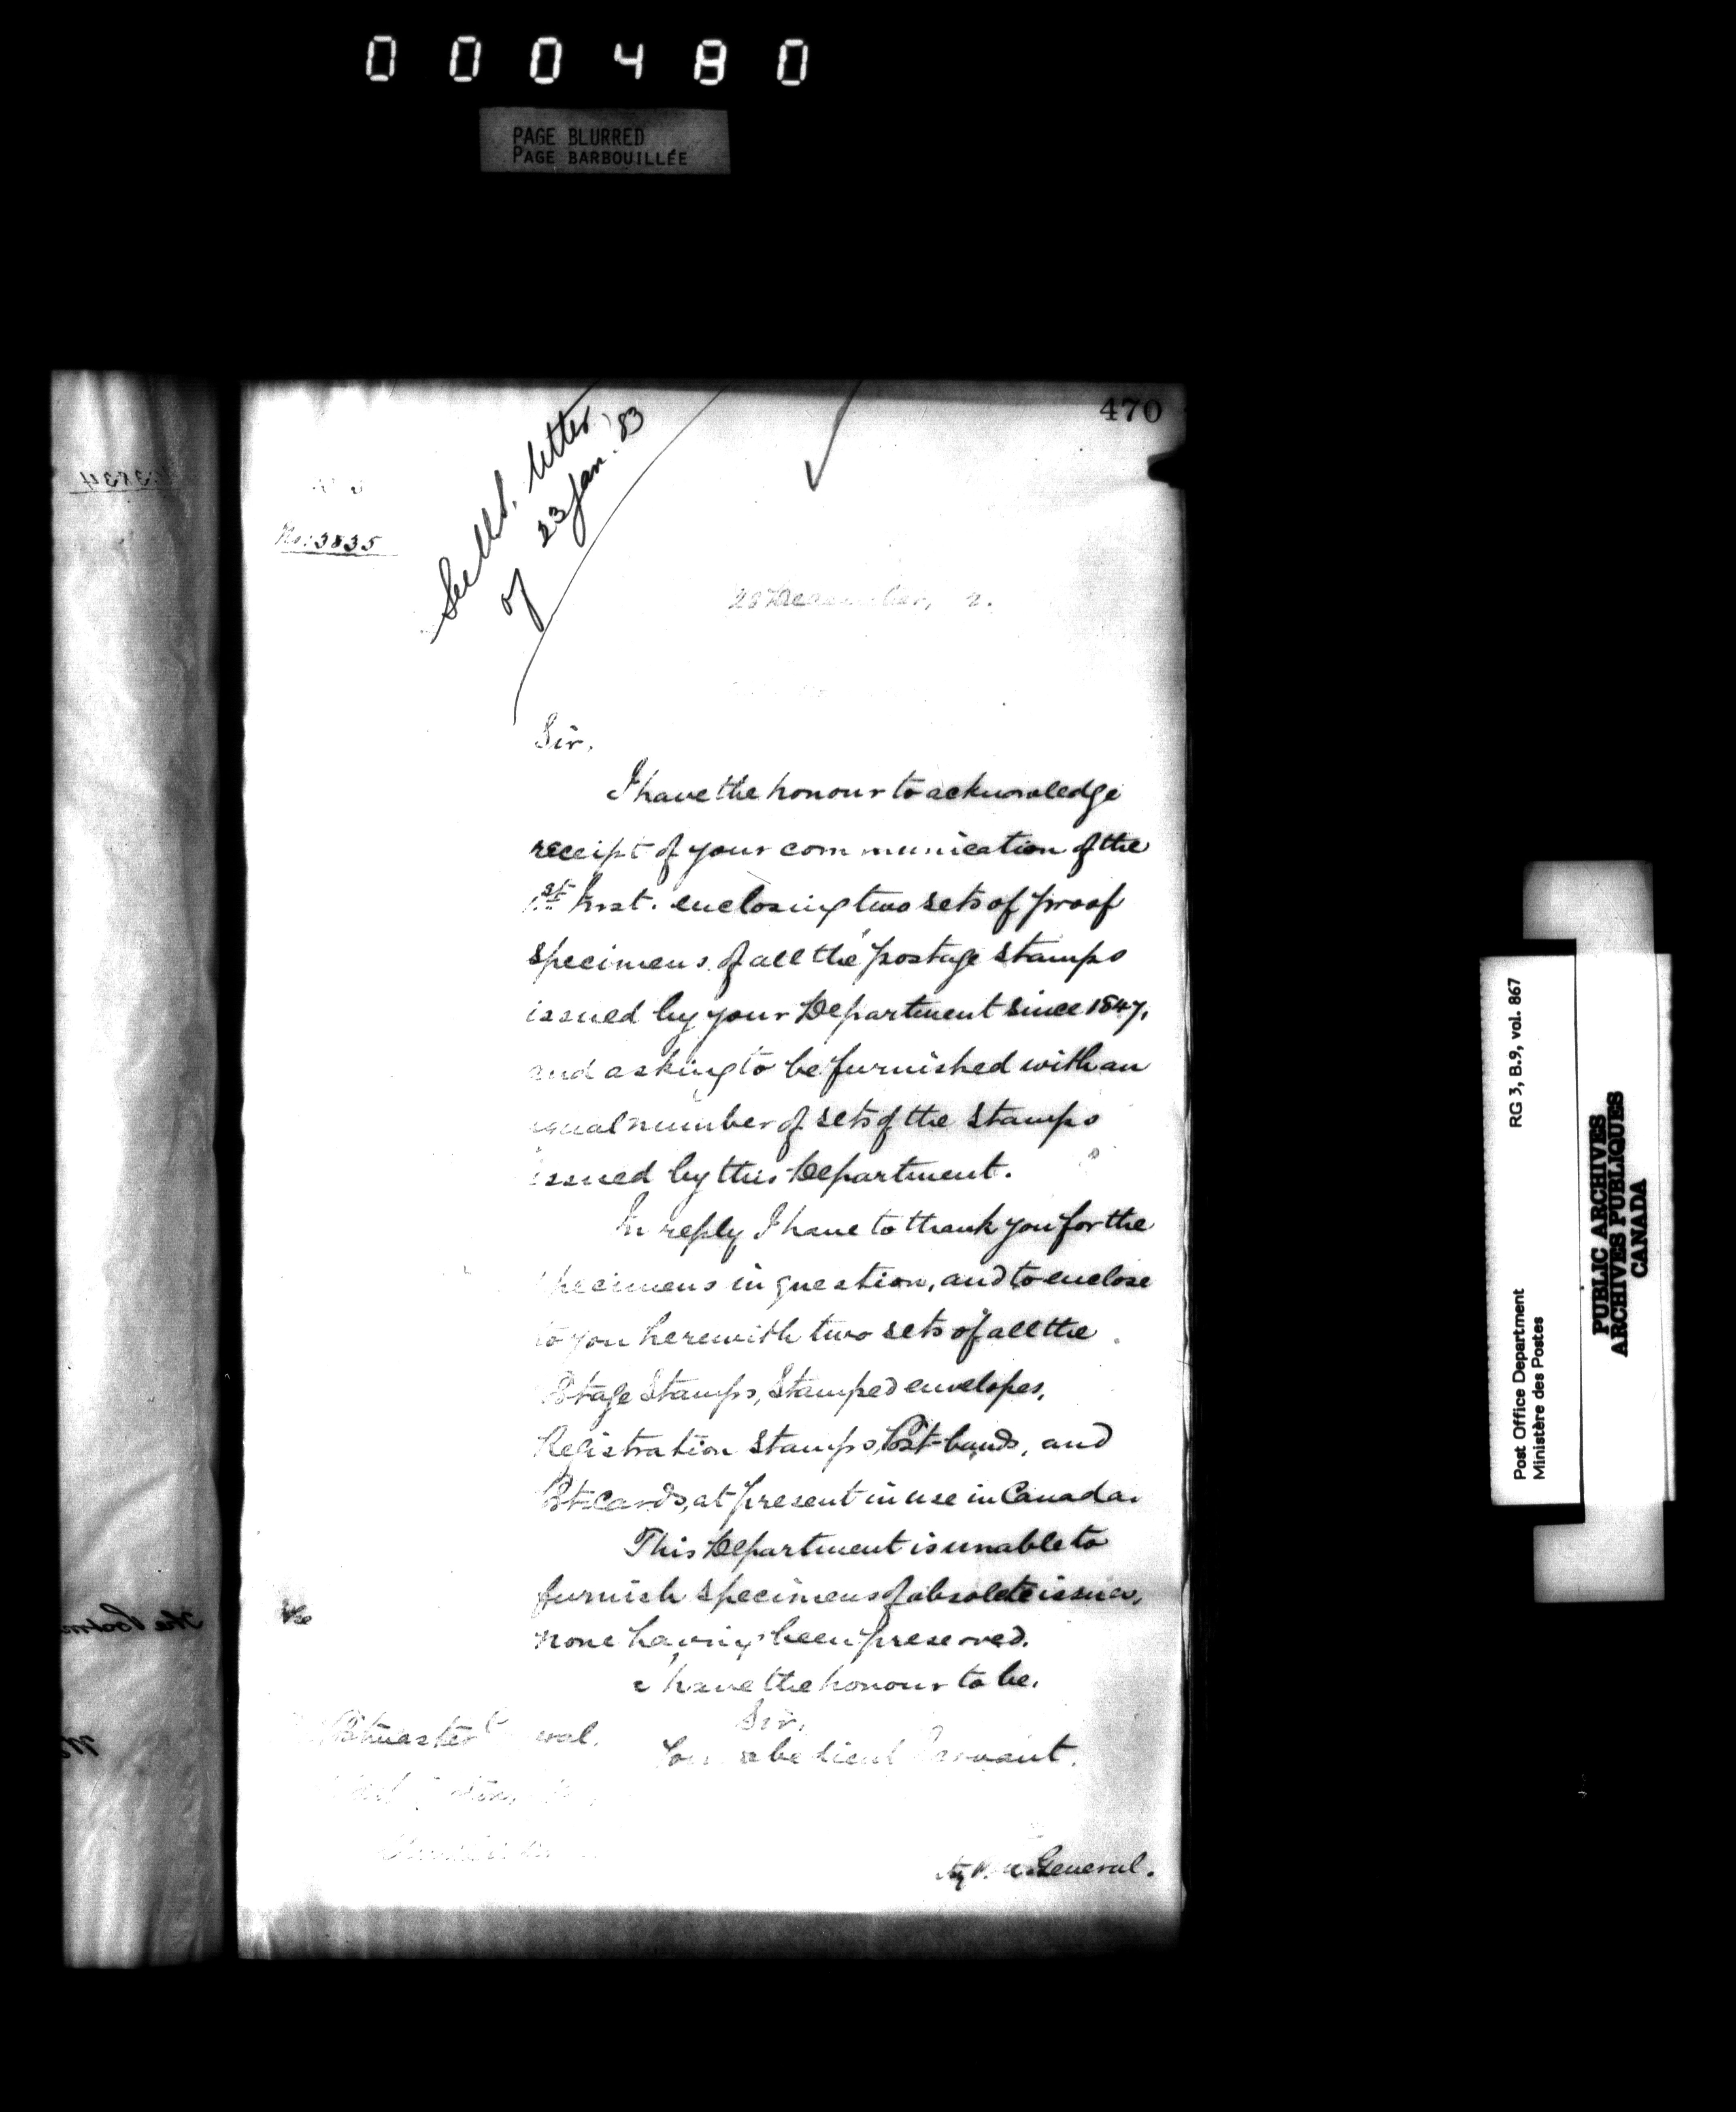 000480
PAGE BLURRED
PAGE BARBOUILLÉE
470
See letter
of 23 Jan. '83
No. 3835
28 December, 2.
Sir,
I have the honour to acknowledge
receipt of your communication of the
1st Inst. enclosing two sets of proof
specimens of all the postage stamps
issued by your Department since 1847,
and asking to be furnished with an
equal number of sets of the stamps
issued by this Department.
In reply I have to thank you for the
specimens in question, and to enclose
to you herewith two sets of all the
Postage Stamps, Stamped envelopes,
Registration Stamps, Post-bands, and
Post-Cards, at present in use in Canada.
This Department is unable to
furnish specimens of obsolete issues,
none having been preserved.
I have the honour to be,
Sir,
Your obedient Servant.
Postmaster General.
General.
3834
The Postm
Post Office Department RG 3, B.9, vol. 867
Ministère des Postes
PUBLIC ARCHIVES
ARCHIVES PUBLIQUES
CANADA